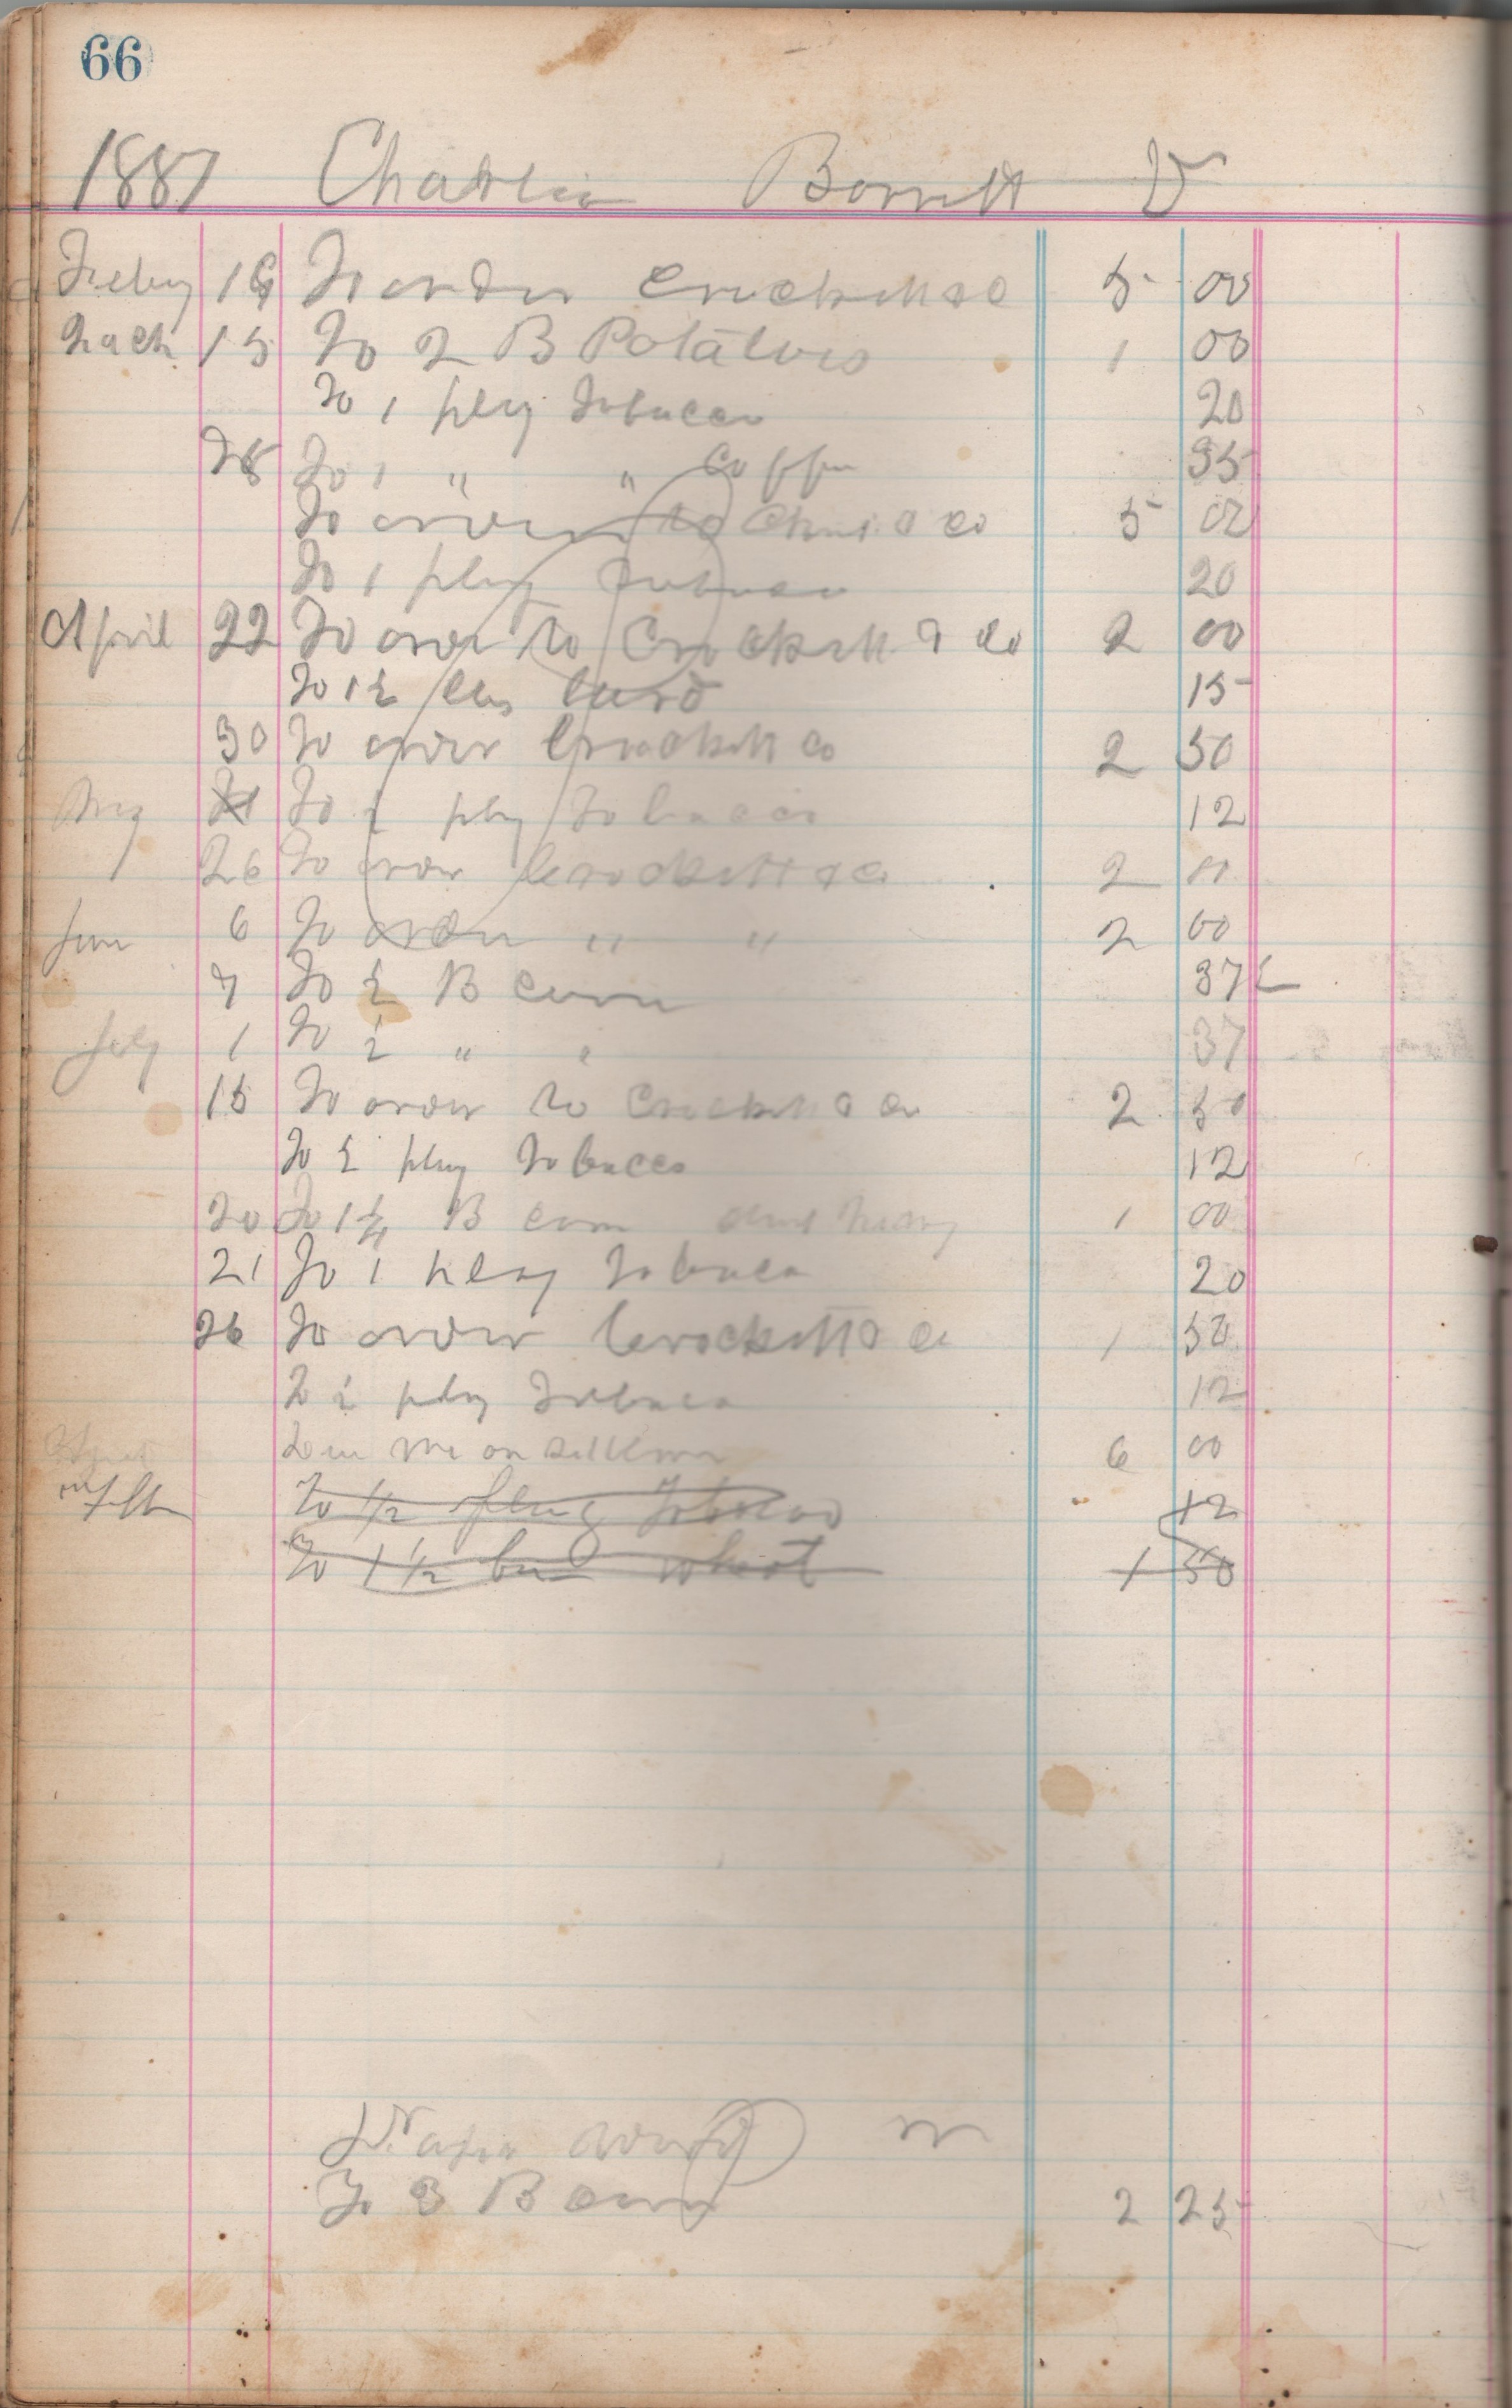 66
1887 Charlie Borrett Dr
Feby 16 To order Crockett & Co 5 00
15 To 2 B Potatoes 1 00
To 1 plug Tobacco 20
To 1 " " Coffee 35
To order to & co 5 00
To 1 plug Tobacco 20
April 22 To order to Crockett & Co 2 00
To 1½ lbs lard 15
30 To order Crockett Co 2 50
May To ½ plug Tobacco 12
26 To order Crockett & Co 2 00
June 6 To order " " 2 00
7 To ½ B Corn 37½
July 1 To ½ " " 37
15 To order to Crockett & Co 2 50
To ½ plug Tobacco 12
20 To 1¼ B corn 1 00
21 To 1 plug Tobacco 20
26 To order Crockett & Co 1 50
½ plug Tobacco 12
me on 6 00
To ½ plug Tobacco 12
To 1 ½ bu wheat 1 50
To 3 B Corn 2 25